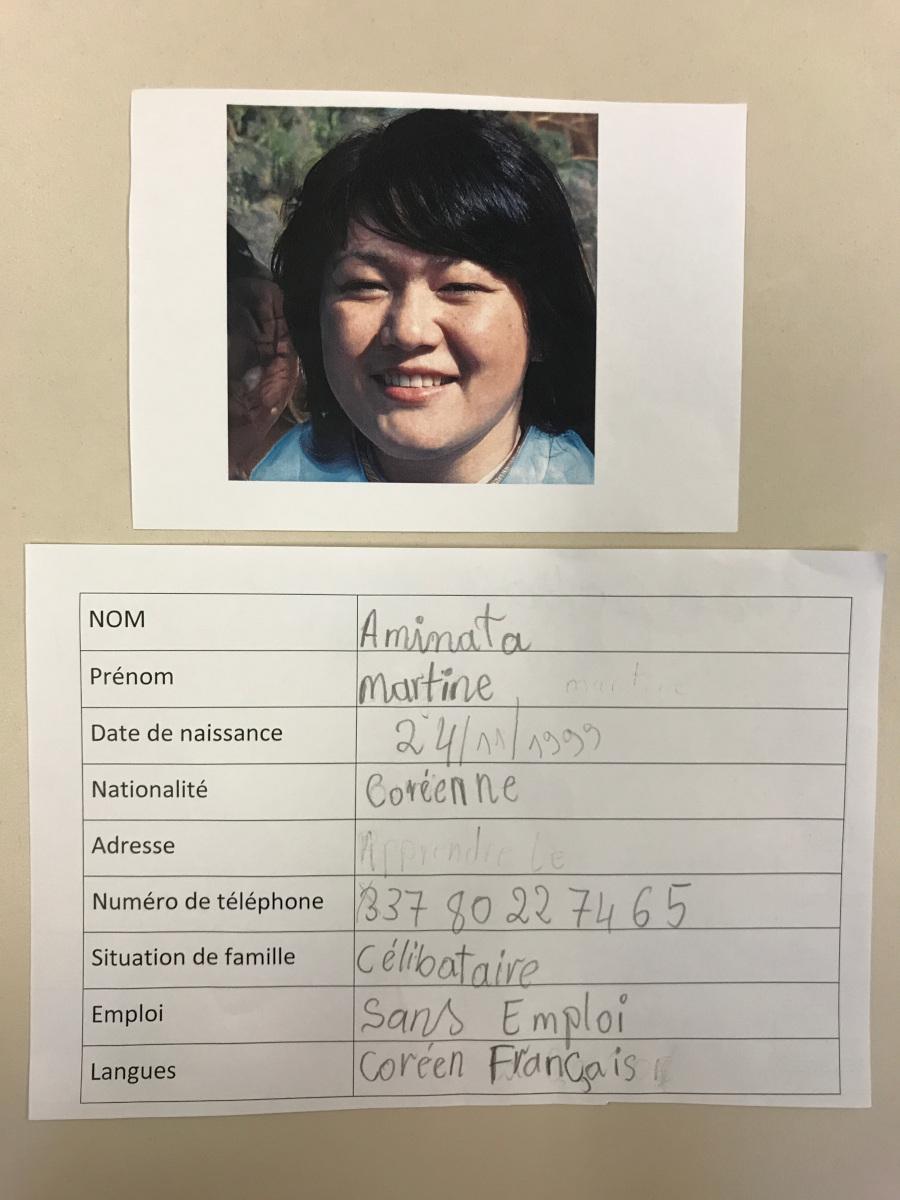 NOM Aminata
Prénom Martine martine
Date de naissance 24/11/1999
Nationalité Coréenne
Adresse Apprendre Le
Numéro de téléphone 337 80 22 74 65
Situation de famille Célibataire
Emploi Sans Emploi
Langues Coréen Français